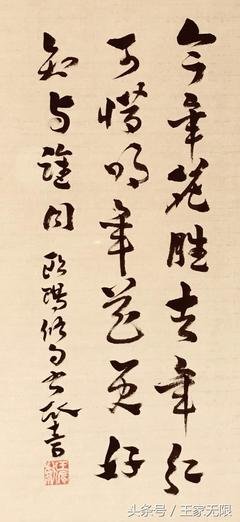 今年花胜去年红
可惜明年花更好
知与誰同 欧陽修句 書
头条号/王家无限